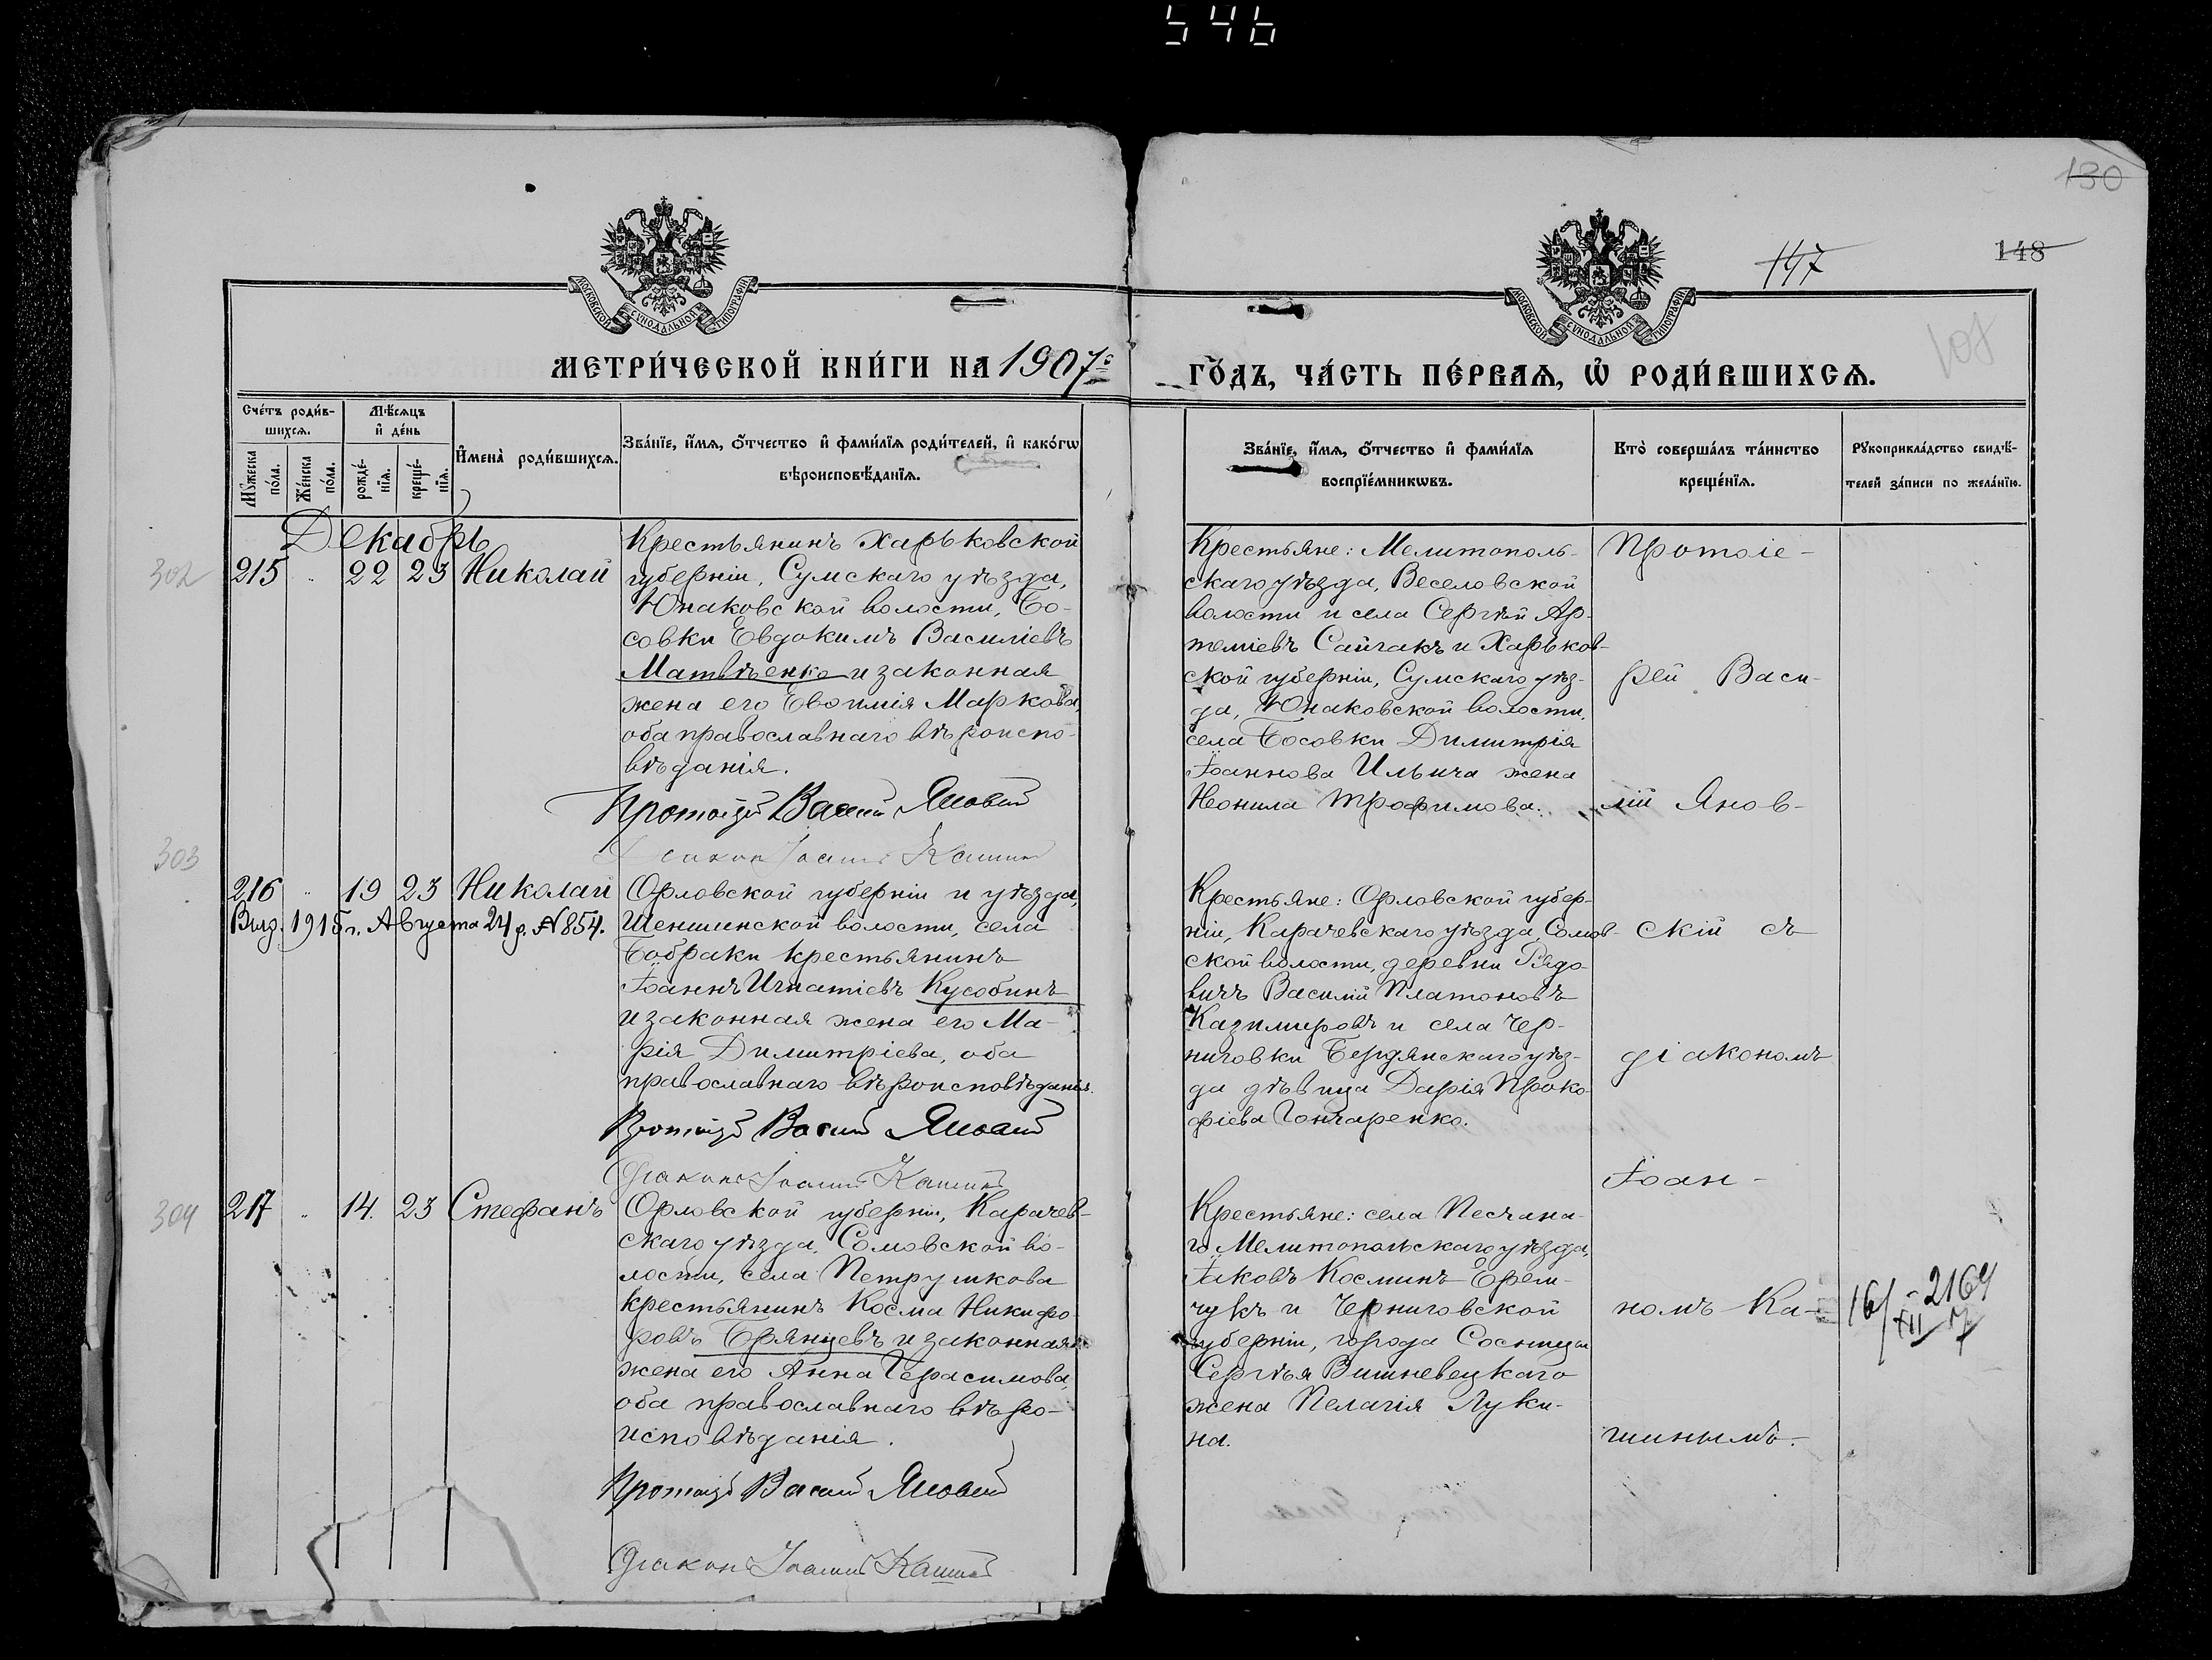 546
130
147
148
108
МОСКОВСКОЙ СѴНОДАЛЬНОЙ ТИПОГРАФІИ
МОСКОВСКОЙ СѴНОДАЛЬНОЙ ТИПОГРАФІИ
МЕТРИ́ЧЕСКОЙ КНИ́ГИ НА 1907 г.
ГО́ДЪ, ЧА́СТЬ ПЕ́РВАѦ, Ѡ҆ РОДИ́ВШИХСѦ.
Сче́тъ роди́в-
шихсѧ.
Му́жеска по́ла.
Же́нска по́ла.
Мѣ́сѧцъ
и҆ де́нь
рожде́-
нїѧ.
креще́-
нїѧ.
И҆мена̀ роди́вшихсѧ.
Зва́нїе, и҆́мѧ, ѻ҆́тчество и҆ фами́лїѧ роди́телей, и҆ како́гѡ
вѣроисповѣ́данїѧ.
Зва́нїе, и҆́мѧ, ѻ҆́тчество и҆ фами́лїѧ
воспрїе́мникѡвъ.
Кто̀ соверша́лъ та́инство
креще́нїѧ.
Рꙋкоприкла́дство свидѣ́-
телей за́писи по жела́нїю.
Декабрь
302
215 " 22 23 Николай
Крестьянинъ Харьковской
губерніи, Сумскаго уѣзда,
Юнаковской волости, Бо-
совки Евдокимъ Василіевъ
Матвѣенко и законная
жена его Евѳимія Маркова,
оба православнаго вѣроиспо-
вѣданія.
Протоіерей Василій Яновскій
Діаконъ Іоаннъ Кашинъ
Крестьяне: Мелитополь-
скаго уѣзда, Веселовской
волости и села Сергѣй Ар-
теміевъ Сайгакъ и Харьков-
ской губерніи, Сумскаго уѣз-
да, Юнаковской волости,
села Босовки Димитрія
Іоаннова Ильича жена
Неонила Трофимова.
Протоіе-
рей Васи-
лій Янов-
скій съ
діакономъ
Іоан-
номъ Ка-
шинымъ.
303
216 " 19 23 Николай
Выд. 1915 г. Августа 24 д. № 854.
Орловской губерніи и уѣзда,
Шеншинской волости, села
Бобраки крестьянинъ
Іоаннъ Игнатіевъ Кусобинъ
и законная жена его Ма-
рія Димитріева, оба
православнаго вѣроисповѣданія.
Протоіерей Василій Яновскій
Діаконъ Іоаннъ Кашинъ
Крестьяне: Орловской губер-
ніи, Карачевскаго уѣзда, Сомов-
ской волости, деревни Рядо-
вичъ Василій Платоновъ
Казимировъ и села Чер-
ниговки Бердянскаго уѣз-
да дѣвица Дарія Проко-
фіева Гончаренко.
304
217 " 14. 23 Стефанъ
Орловской губерніи, Карачев-
скаго уѣзда, Сомовской во-
лости, села Петрушкова
крестьянинъ Косма Никифо-
ровъ Брянцевъ и законная
жена его Анна Герасимова,
оба православнаго вѣро-
исповѣданія.
Протоіерей Василій Яновскій
Діаконъ Іоаннъ Кашинъ
Крестьяне: села Песчана-
го Мелитопольскаго уѣзда,
Іаковъ Косминъ Ефем-
чукъ и Черниговской
губерніи, города Сосницы
Сергѣя Вишневецкаго
жена Пелагія Луки-
на.
16/XII 7 - 2164